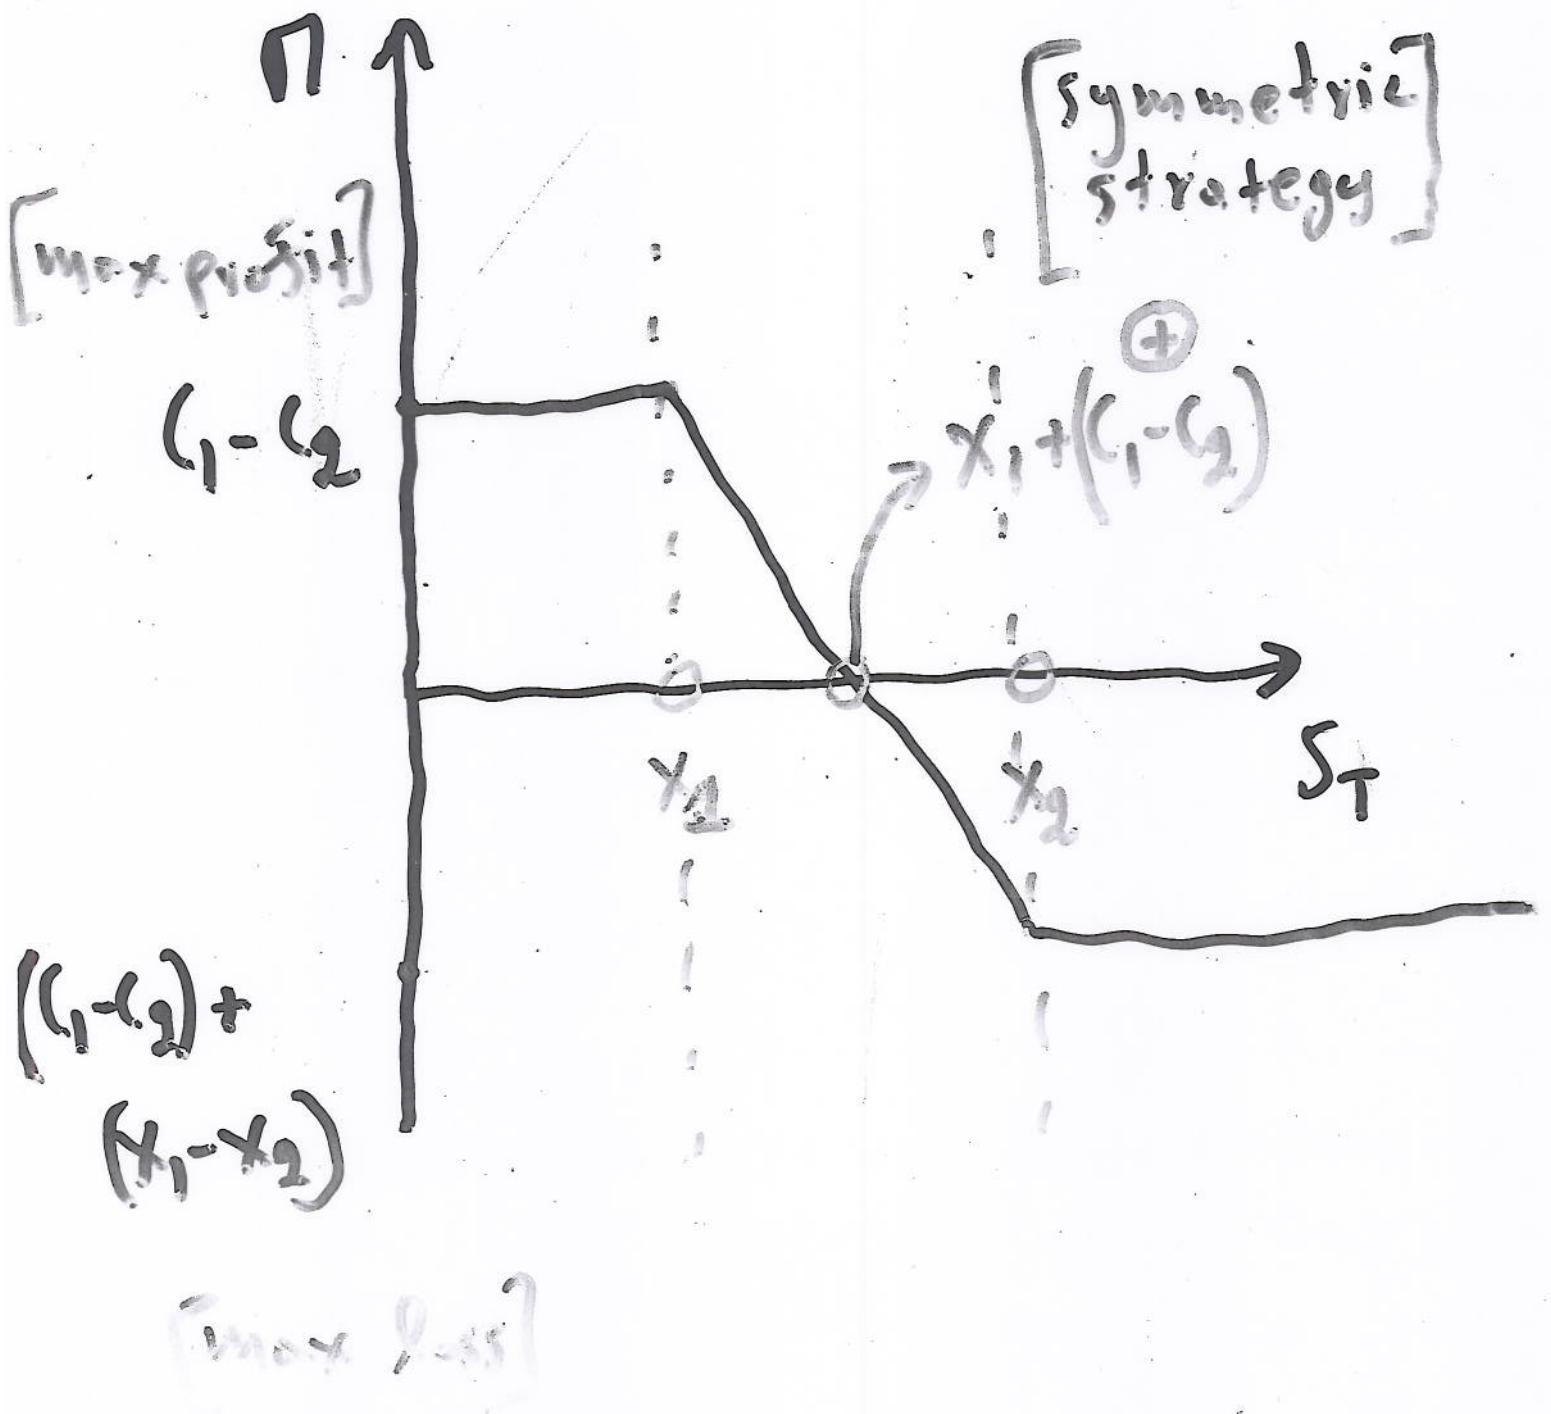 Π
[symmetric
strategy]
[max profit]
+
C₁-C₂
X₁+(C₁-C₂)
X₁
X₂
S_T
((C₁-C₂)+
(X₁-X₂)
[max loss]